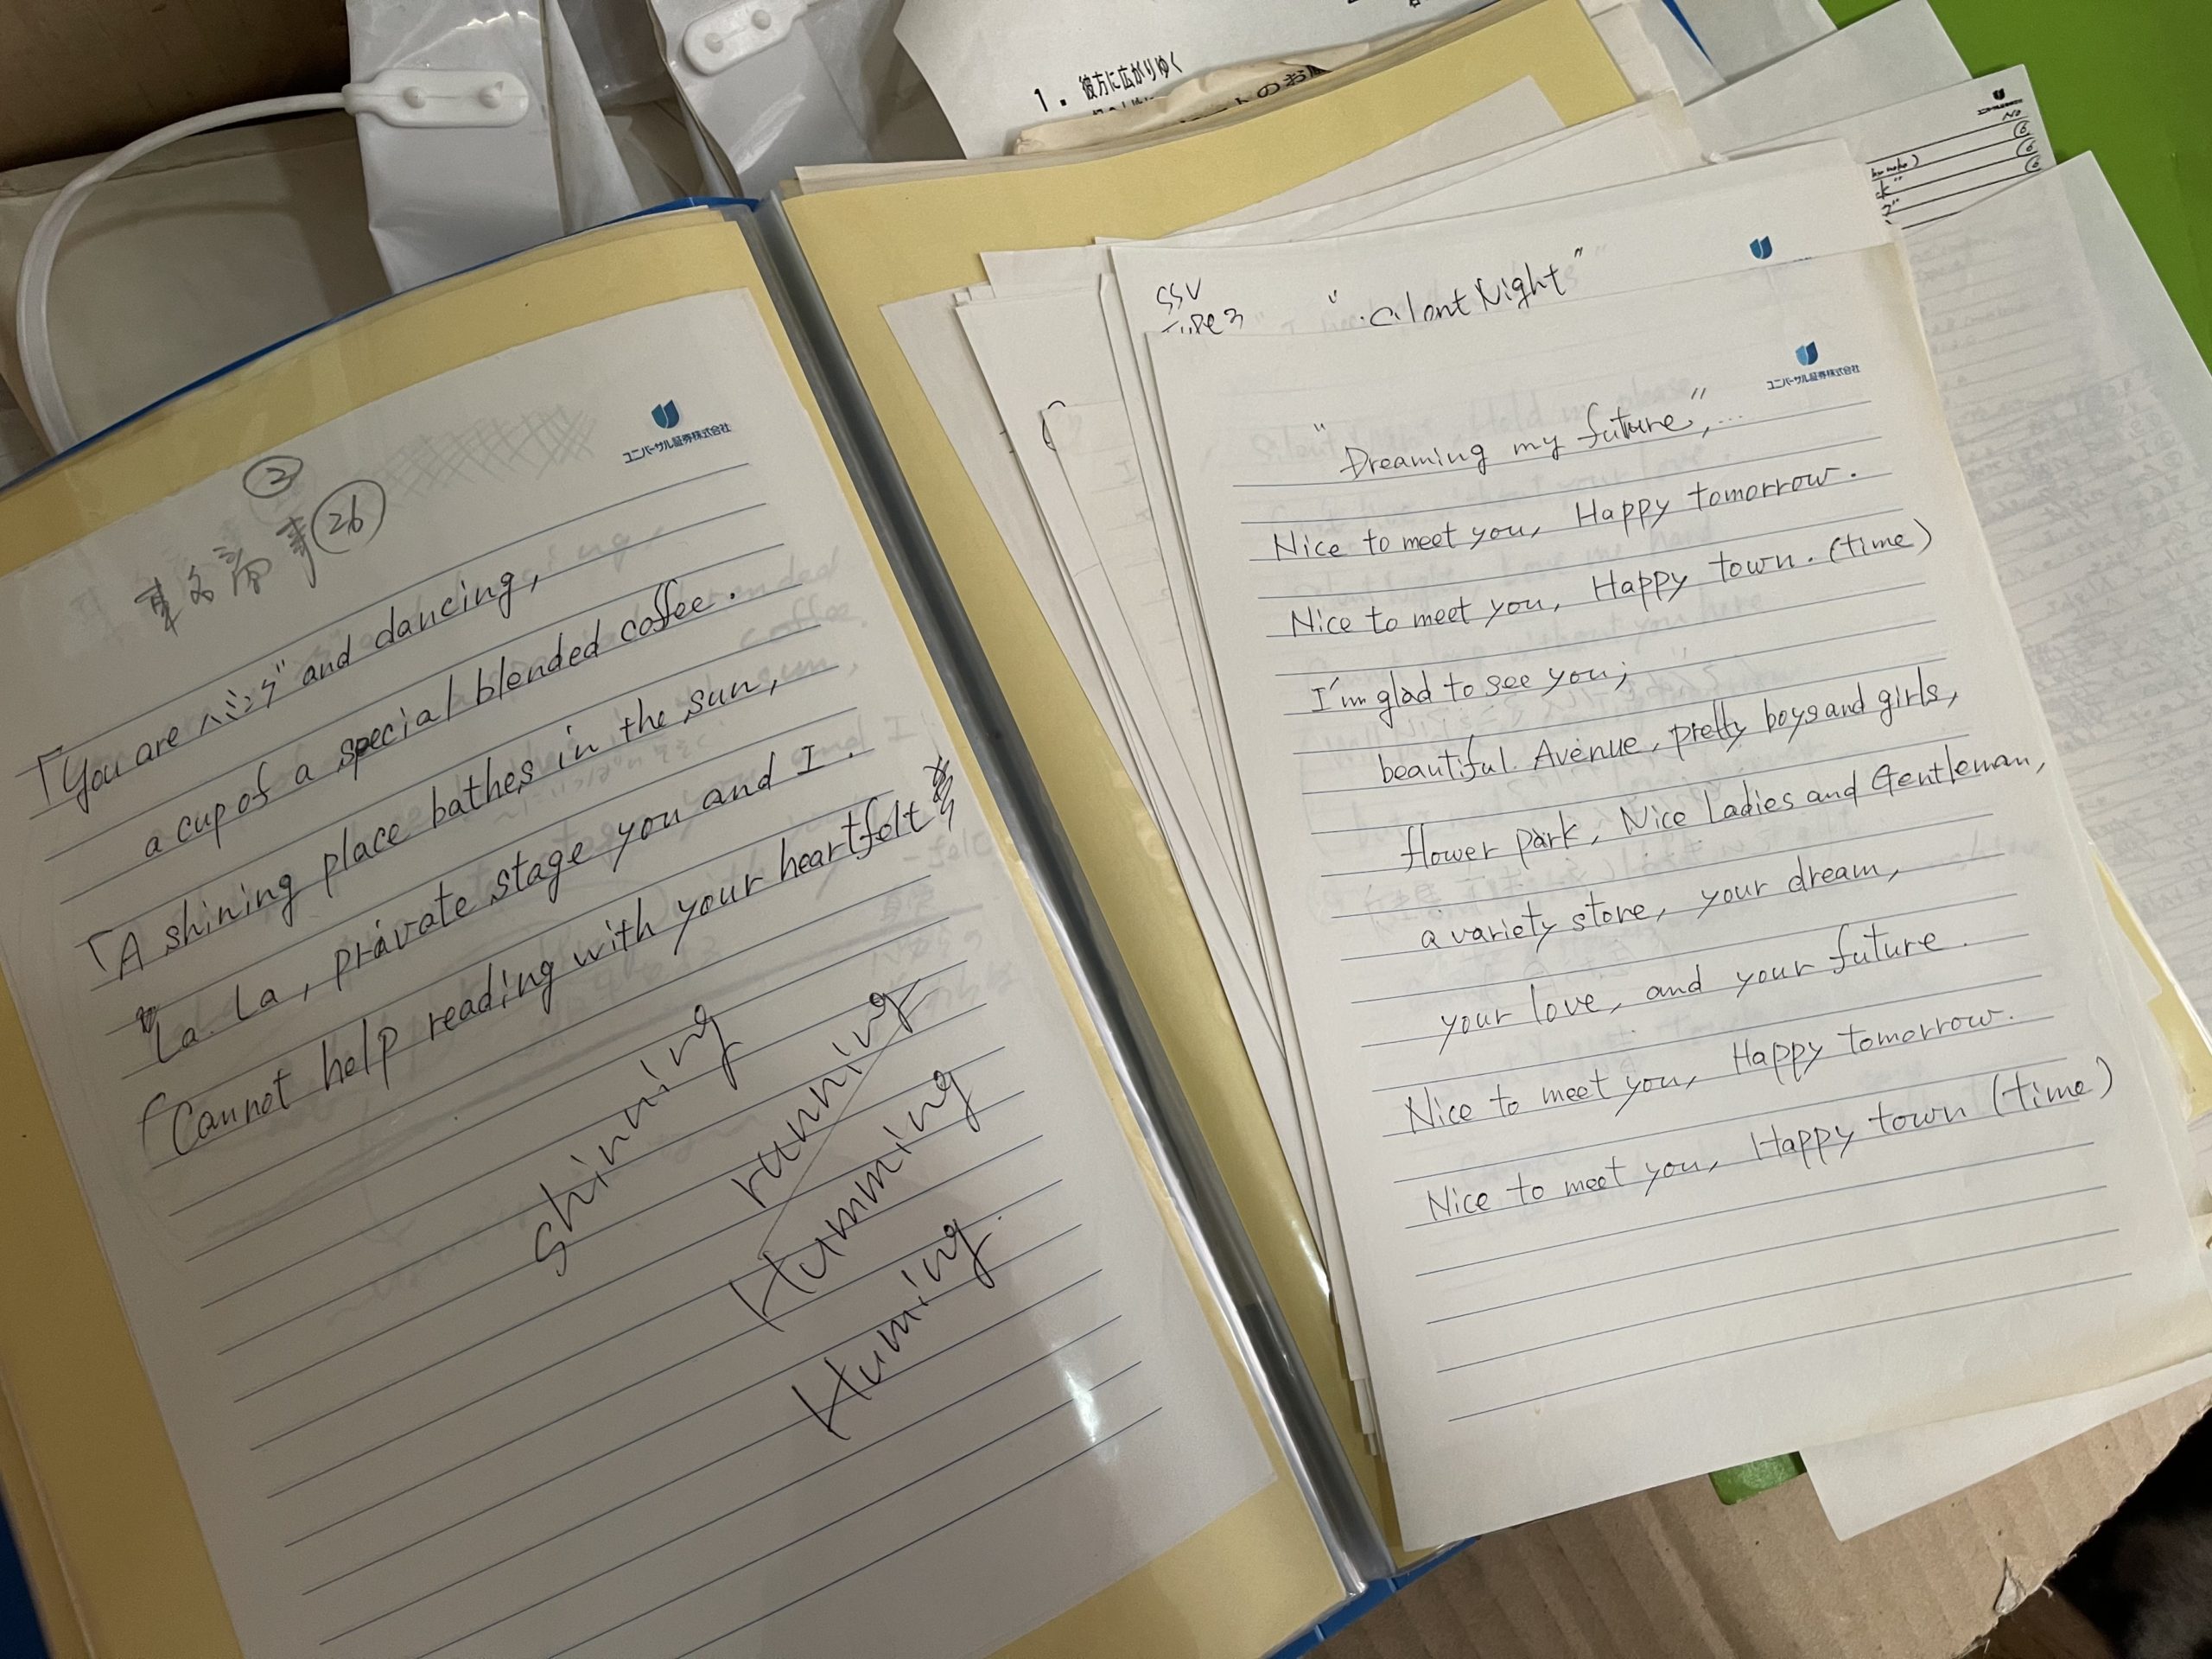 ②
㉖
ユニバーサル証券株式会社
「You are ハミング" and dancing,
a cup of a special blended coffee.
「A shining place bathes in the sun,
La La, private stage you and I.
「Cannot help reading with your heartfelt
shinning
running
Humming
Huming.
1. 彼方に広がりゆく
SSV
"Silent Night"
ユニバーサル証券株式会社
"Dreaming my future",...
Nice to meet you, Happy tomorrow.
Nice to meet you, Happy town. (time)
I'm glad to see you,
beautiful Avenue, pretty boys and girls,
flower park, Nice Ladies and Gentleman,
a variety store, your dream,
your love, and your future.
Nice to meet you, Happy tomorrow.
Nice to meet you, Happy town (time)
No
⑥
⑥
⑥